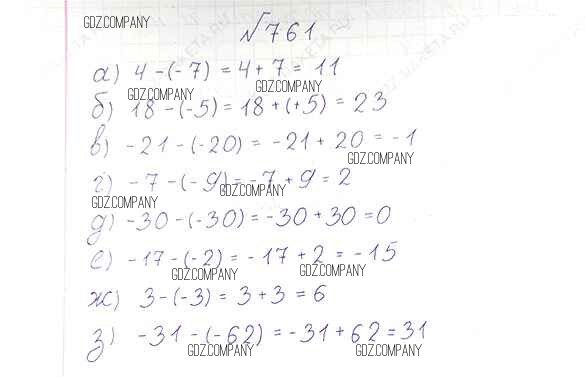 GDZ.COMPANY
√761
а) 4 - (-7) = 4 + 7 = 11
GDZ.COMPANY GDZ.COMPANY
б) 18 - (-5) = 18 + (+5) = 23
в) -21 - (-20) = -21 + 20 = -1
GDZ.COMPANY
г) -7 - (-9) = -7 + 9 = 2
GDZ.COMPANY
GDZ.COMPANY
д) -30 - (-30) = -30 + 30 = 0
е) -17 - (-2) = -17 + 2 = -15
GDZ.COMPANY GDZ.COMPANY
ж) 3 - (-3) = 3 + 3 = 6
з) -31 - (-62) = -31 + 62 = 31
GDZ.COMPANY GDZ.COMPANY